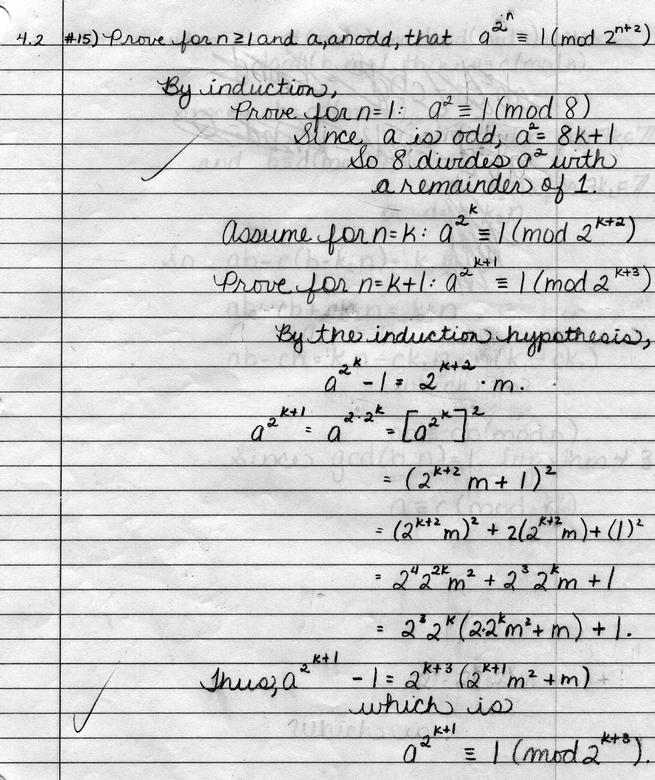 4.2 #15) Prove for n≥1 and a, an odd, that a^{2^n} ≡ 1 (mod 2^{n+2})
By induction,
Prove for n=1: a^2 ≡ 1 (mod 8)
Since a is odd, a^2 = 8k+1
So 8 divides a^2 with
a remainder of 1.
Assume for n=k: a^{2^k} ≡ 1 (mod 2^{k+2})
Prove for n=k+1: a^{2^{k+1}} ≡ 1 (mod 2^{k+3})
By the induction hypothesis,
a^{2^k} - 1 = 2^{k+2} · m.
a^{2^{k+1}} = a^{2·2^k} = [a^{2^k}]^2
= (2^{k+2} m + 1)^2
= (2^{k+2} m)^2 + 2(2^{k+2} m) + (1)^2
= 2^4 2^{2k} m^2 + 2^3 2^k m + 1
= 2^3 2^k (2·2^k m^2 + m) + 1.
Thus, a^{2^{k+1}} - 1 = 2^{k+3} (2^{k+1} m^2 + m)
which is
a^{2^{k+1}} ≡ 1 (mod 2^{k+3}).